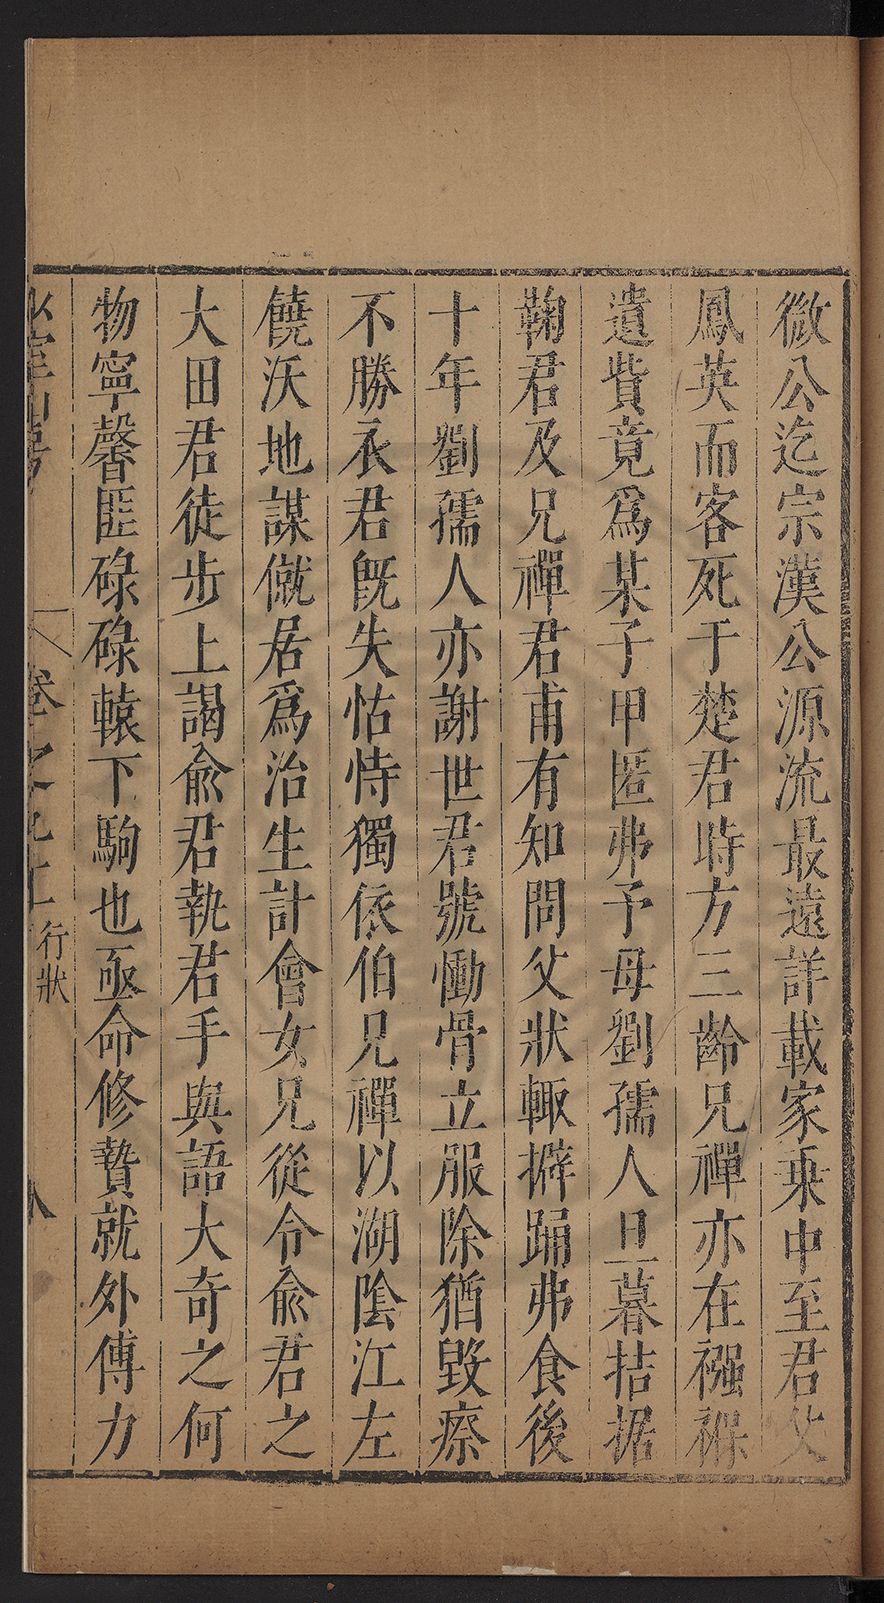 微公迄宗漢公源流最遠詳載家乗中至君父
鳳英而客死于楚君時方三齡兄禪亦在襁褓
遺貲竟爲某子甲匿弗予母劉孺人旦暮拮据
鞠君及兄禪君甫有知問父狀輙擗踊弗食後
十年劉孺人亦謝世君號慟骨立服除猶毀瘵
不勝衣君旣失怙恃獨依伯兄禪以湖陰江左
饒沃地謀僦居爲治生計會女兄從令兪君之
大田君徒步上謁兪君執君手與語大奇之何
物寧馨匪碌碌轅下駒也亟命修贄就外傅力
卷之 行狀 八